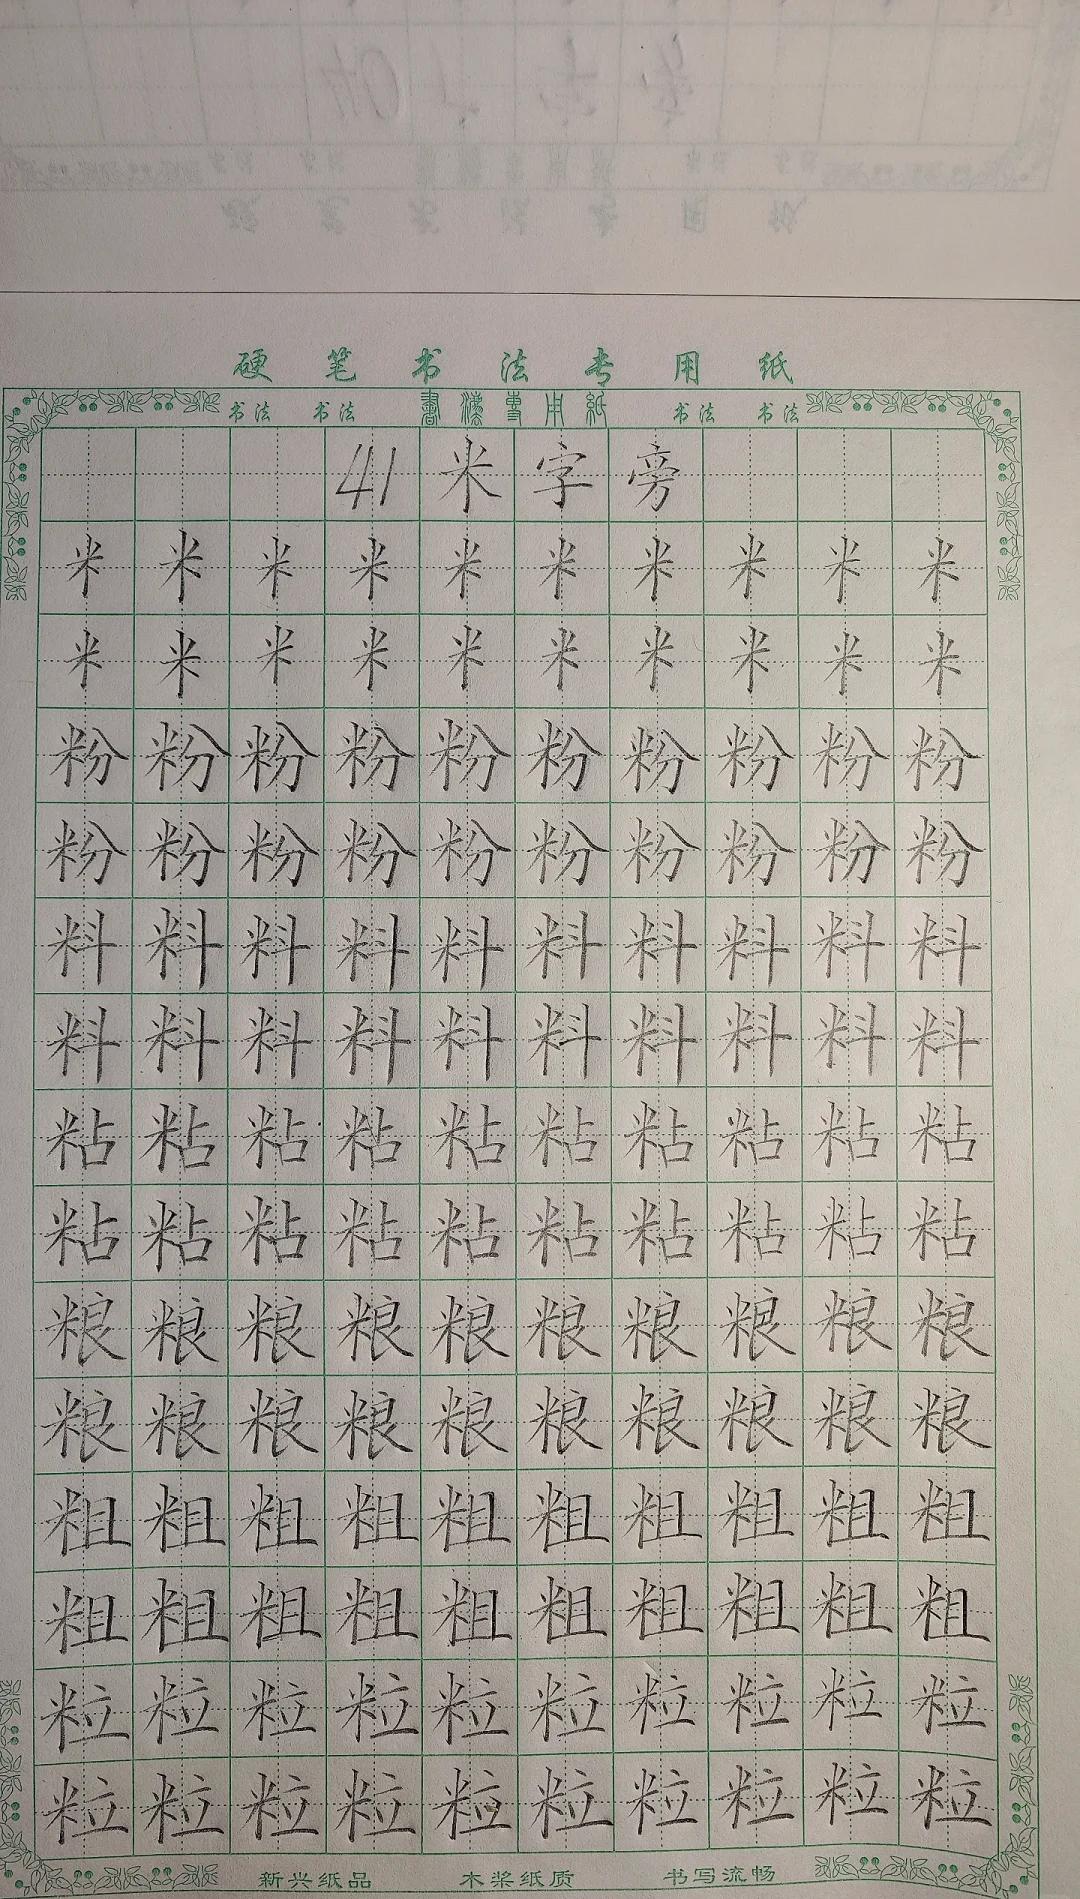 硬笔书法专用纸
书法 书法 書法専用紙 书法 书法
41米字旁
米米米米米米米米米米
米米米米米米米米米米
粉粉粉粉粉粉粉粉粉粉
粉粉粉粉粉粉粉粉粉粉
料料料料料料料料料料
料料料料料料料料料料
粘粘粘粘粘粘粘粘粘粘
粘粘粘粘粘粘粘粘粘粘
粮粮粮粮粮粮粮粮粮粮
粮粮粮粮粮粮粮粮粮粮
粗粗粗粗粗粗粗粗粗粗
粗粗粗粗粗粗粗粗粗粗
粒粒粒粒粒粒粒粒粒粒
粒粒粒粒粒粒粒粒粒粒
新兴纸品 木浆纸质 书写流畅